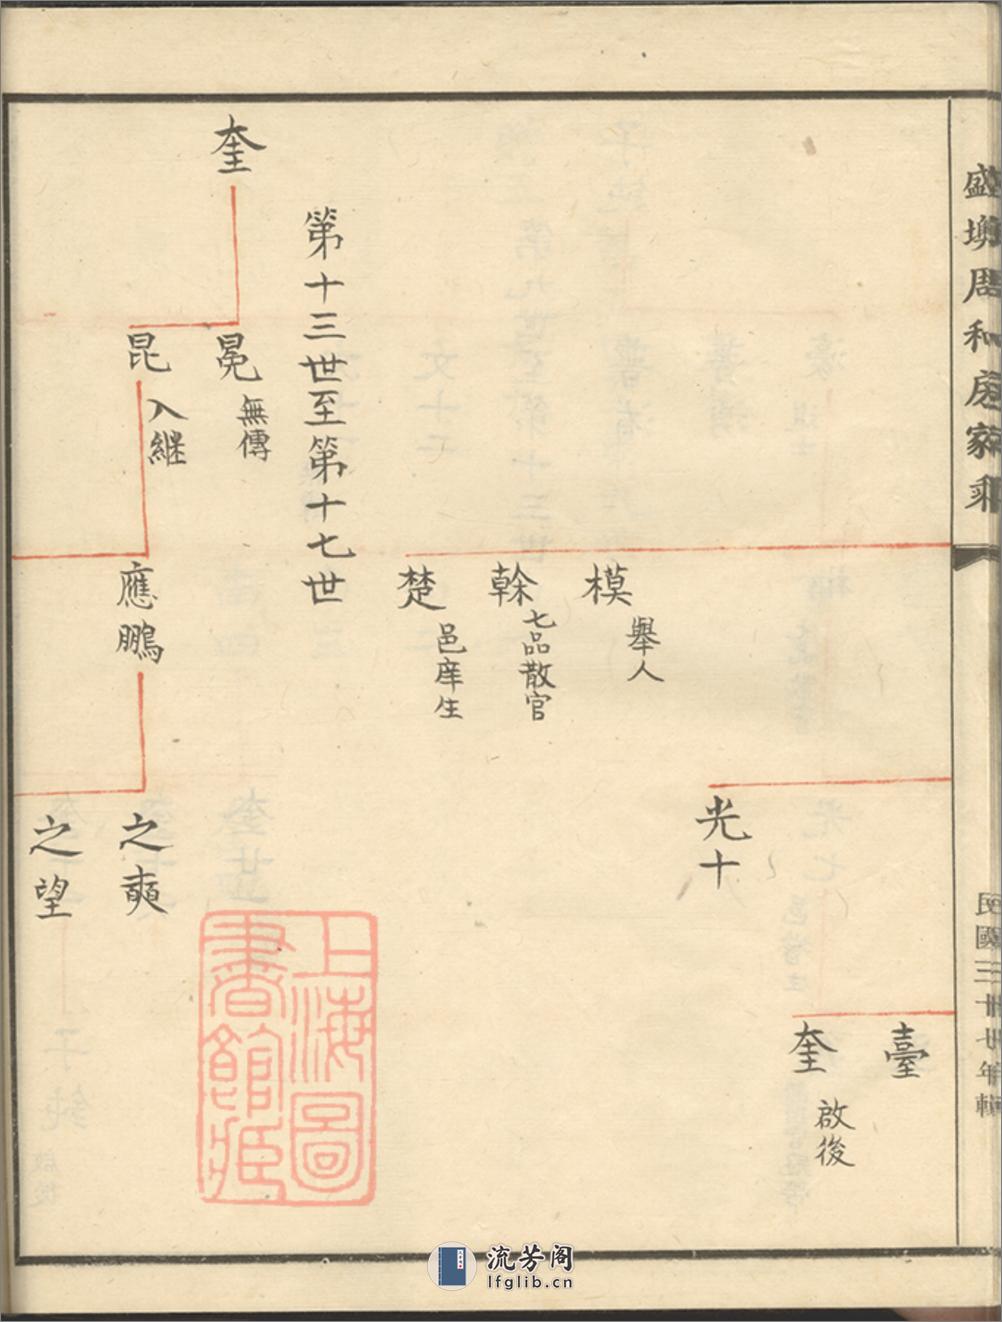 盛墩周和房家乘
民國三十七年輯
臺
奎
啟後
光十
模
舉人
榦
七品散官
楚
邑庠生
第十三世至第十七世
奎
冕
無傳
昆
入継
應鵬
之奭
之望
上海圖
書館藏
流芳阁
lfglib.cn